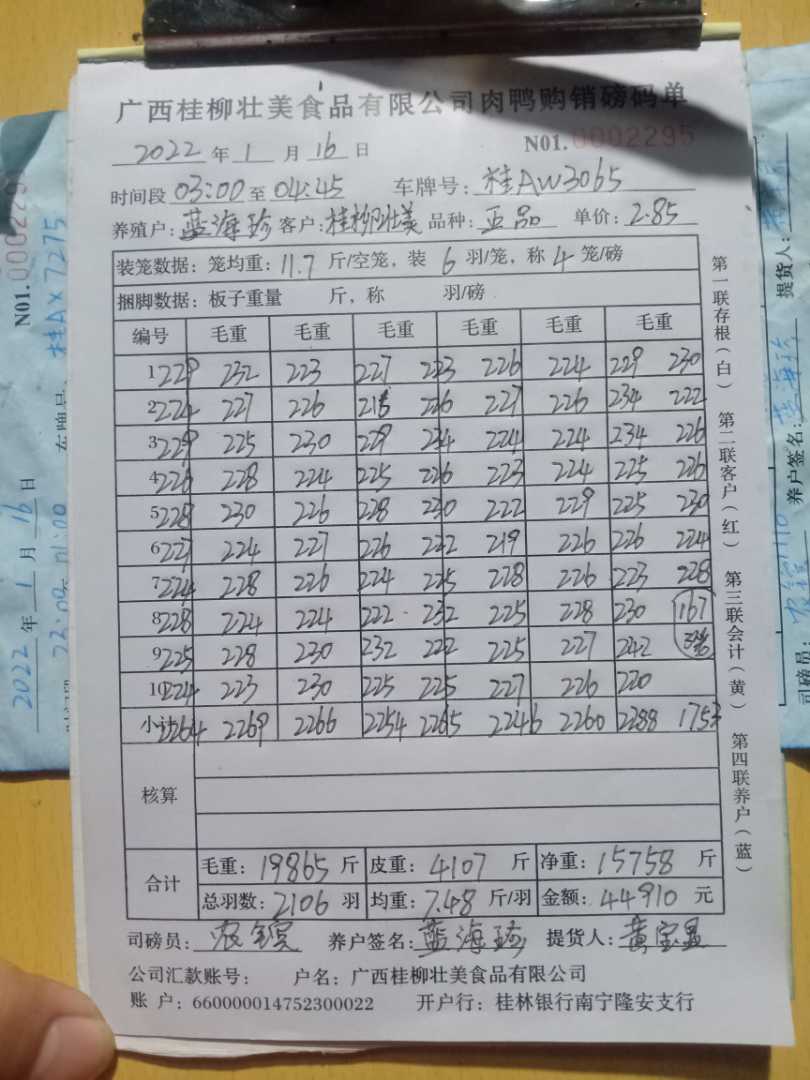 广西桂柳壮美食品有限公司肉鸭购销磅码单
2022 年 1 月 16 日 N01.0002295
时间段 03:00 至 04:45 车牌号: 桂AW3065
养殖户: 蓝海珍 客户: 桂柳壮美 品种: 正品 单价: 2.85
装笼数据: 笼均重: 11.7 斤/空笼, 装 6 羽/笼, 称 4 笼/磅
捆脚数据: 板子重量 斤, 称 羽/磅
编号 毛重 毛重 毛重 毛重 毛重 毛重
1 229 232 223 227 223 226 224 229 230
2 224 227 226 215 226 227 226 234 222
3 229 225 230 229 234 224 224 234 226
4 226 228 224 225 226 223 224 225 226
5 228 230 226 228 230 222 229 225 230
6 227 224 227 226 222 219 226 226 224
7 224 228 226 224 225 228 226 223 228
8 228 224 224 222 232 225 228 230 167
9 225 228 230 232 222 225 227 242 3笼
10 224 223 230 225 225 227 226 220
小计 2264 2269 2266 2254 2265 2246 2260 2288 1753
核算
合计
毛重: 19865 斤 皮重: 4107 斤 净重: 15758 斤
总羽数: 2106 羽 均重: 7.48 斤/羽 金额: 44910 元
司磅员: 养户签名: 蓝海珍 提货人: 黄宝
公司汇款账号: 户名: 广西桂柳壮美食品有限公司
账 户: 660000014752300022 开户行: 桂林银行南宁隆安支行
第一联存根(白) 第二联客户(红) 第三联会计(黄) 第四联养户(蓝)
N01.000229
桂AX7275
2022 年 1 月 16 日
提货人:
养户签名:
司磅员: